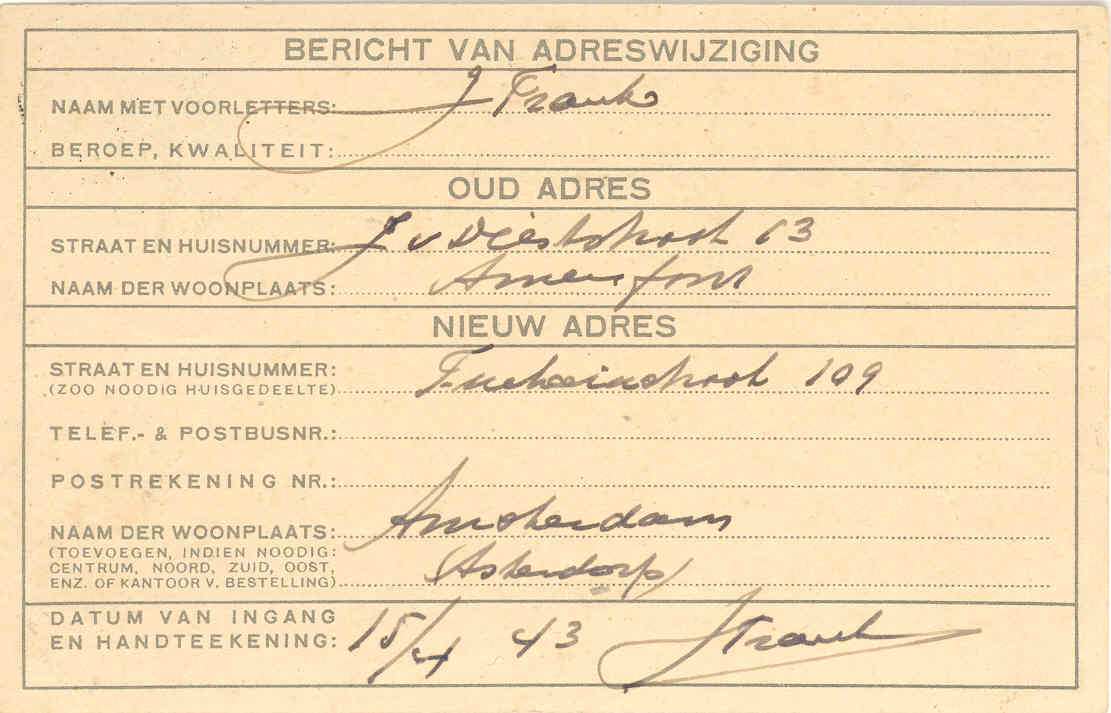 BERICHT VAN ADRESWIJZIGING
NAAM MET VOORLETTERS: J Frank
BEROEP, KWALITEIT:
OUD ADRES
STRAAT EN HUISNUMMER: J v Dieststraat 63
NAAM DER WOONPLAATS: Amersfoort
NIEUW ADRES
STRAAT EN HUISNUMMER: Fuchsiastraat 109
(ZOO NOODIG HUISGEDEELTE)
TELEF.- & POSTBUSNR.:
POSTREKENING NR.:
NAAM DER WOONPLAATS: Amsterdam
(TOEVOEGEN, INDIEN NOODIG:
CENTRUM, NOORD, ZUID, OOST, (Asterdorp)
ENZ. OF KANTOOR V. BESTELLING)
DATUM VAN INGANG
EN HANDTEEKENING: 15/4 43 J Frank